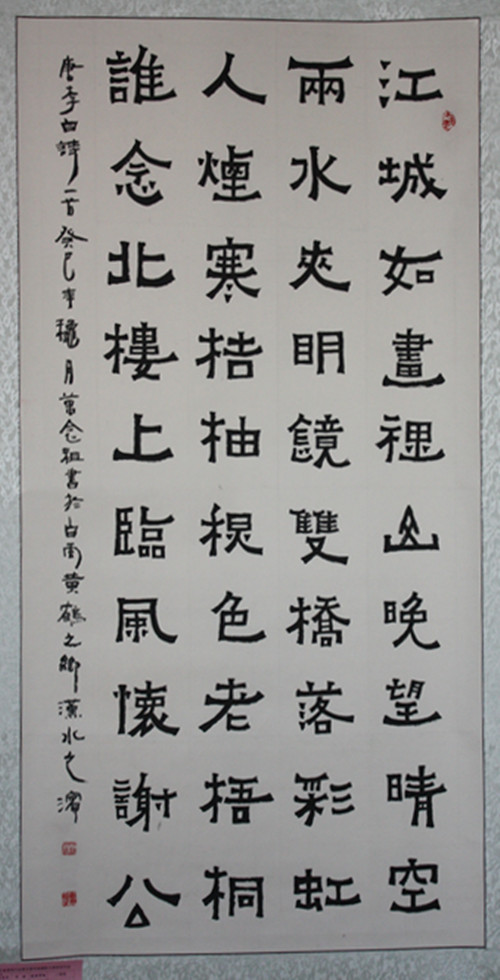 江城如畫裡山晚望晴空
兩水夾明鏡雙橋落彩虹
人煙寒桔柚秋色老梧桐
誰念北樓上臨風懷謝公
唐李白詩一首癸巳年穐月萬念祖書於白雲黄鶴之鄉水之濱